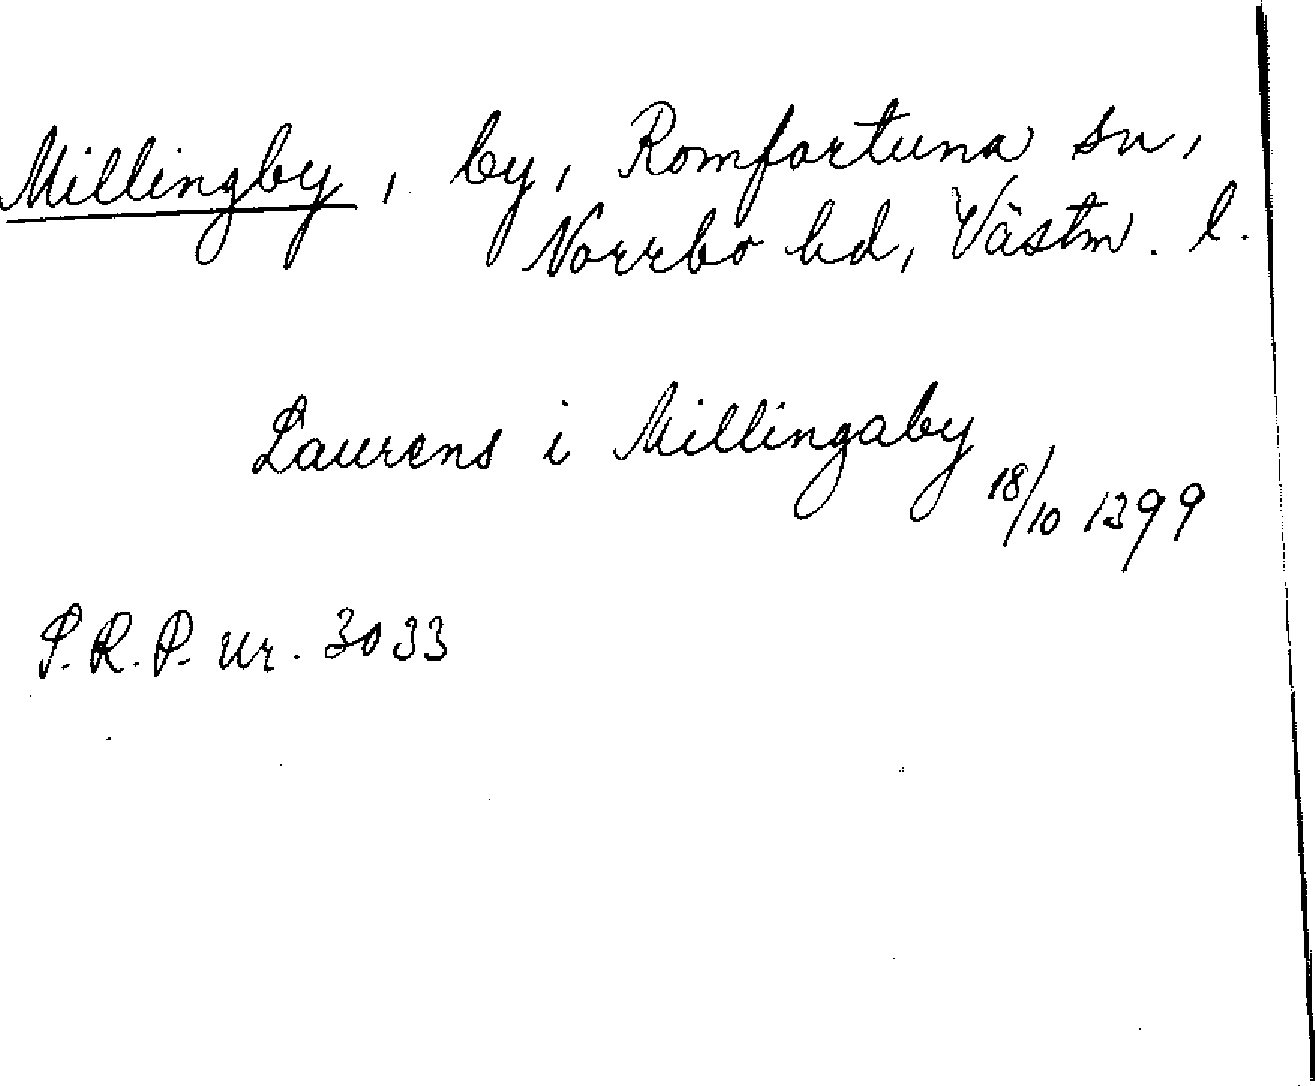 Millingby, by, Romfartuna sn,
Norrbo hd, Västm. l.
Laurens i Millingaby
18/10 1399
S.R.P. nr. 3033